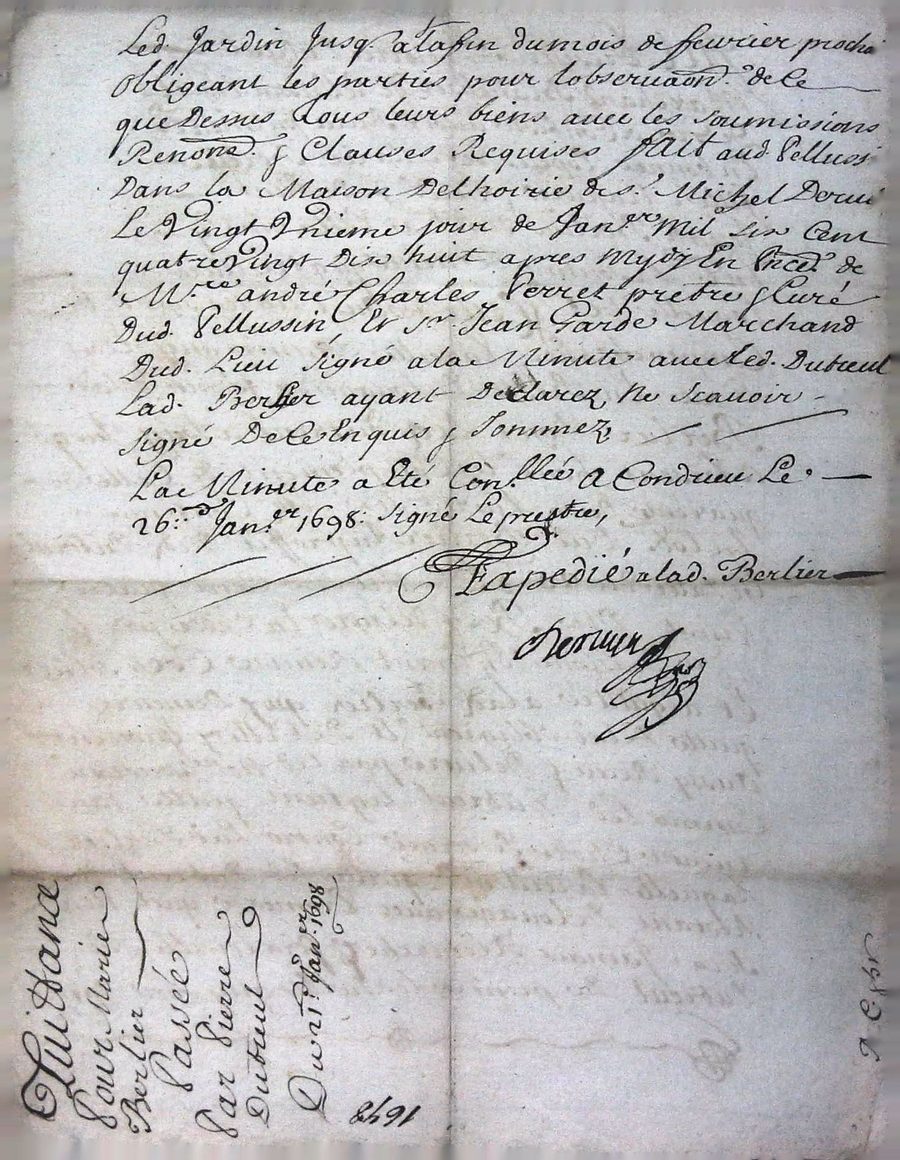 Led. Jardin Jusq. a la fin du mois de fevrier procha
obligeant les parties pour lobservaon. de ce
que Dessus tous leurs biens avec les soumissions
Renonῶ. & Clauses Requises fait aud. Pellussi
Dans la Maison Delhoirie du s.r Michel
Le Vingt Vnieme jour de Jan.er Mil six Cent
quatre Vingt Dix huit apres Mydy En Pnce. de
M.re andré Charles Verret pretre & Curé
Dud. Pellussin Et sr. Jean Garde Marchand
Dud. Lieu signé a la Minute avec Led. Dutreul
Lad. Berlier ayant Declarez Ne scavoir
signé De Ce Enquis & sommez
La Minute a Eté Con.llée a Condrieu Le
26.d Jan.er 1698: signé Leprestre,
Expedié a lad. Berlier
Quittance
Pour Marie
Berlier
Passée
Par Pierre
Dutreul
Du 21.e Jan.er 1698
1698